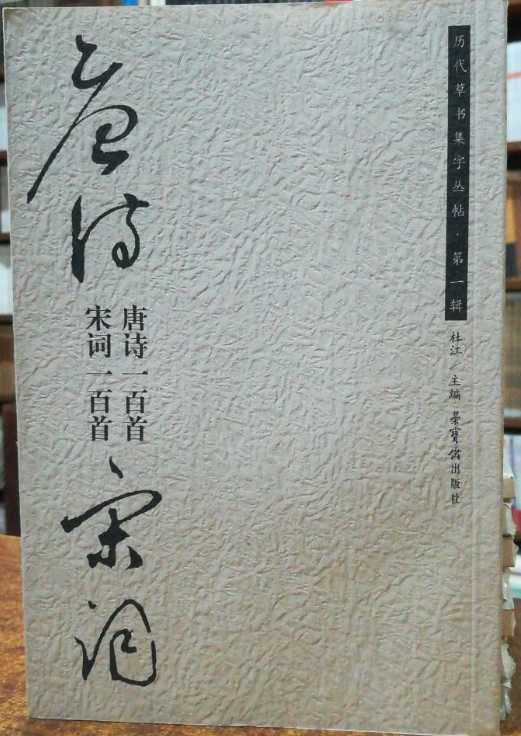 历代草书集字丛帖·第一辑
杜江 主编 荣宝斋出版社
唐诗
唐诗一百首
宋词一百首
宋词